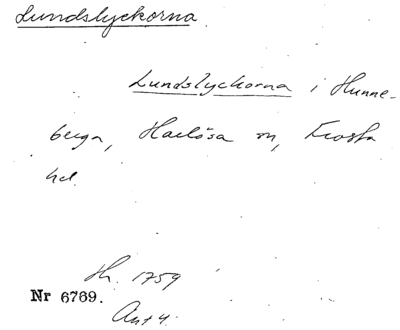 Lundslyckorna.
Lundslyckorna i Hunne-
berga, Harlösa sn, Frosta
hd.
Th. 1759
Nr 6769.
Ant 4.